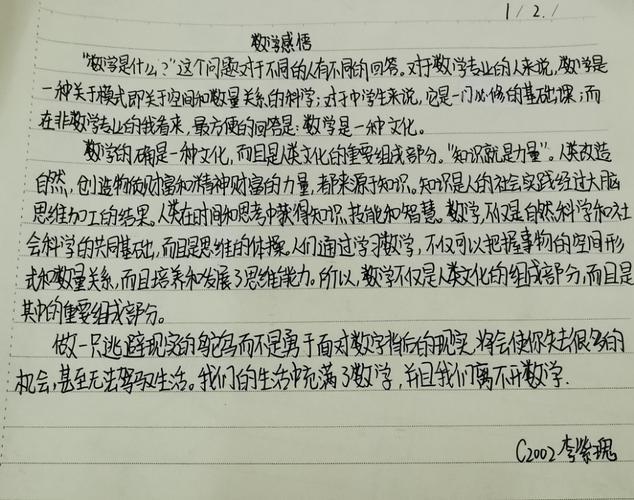 1/2./
数学感悟
“数学是什么?”这个问题对于不同的人有不同的回答。对于数学专业的人来说,数学是
一种关于模式即关于空间和数量关系的科学;对于中学生来说,它是一门必修的基础课;而
在非数学专业的我看来,最方便的回答是:数学是一种文化。
数学的确是一种文化,而且是人类文化的重要组成部分。“知识就是力量”。人类改造
自然,创造物质财富和精神财富的力量,都来源于知识。知识是人的社会实践经过大脑
思维加工的结果。人类在时间和思考中获得知识、技能和智慧。数学不仅是自然科学和社
会科学的共同基础,而且是思维的体操。人们通过学习数学,不仅可以把握事物的空间形
式和数量关系,而且培养和发展了思维能力。所以,数学不仅是人类文化的组成部分,而且是
其中的重要组成部分。
做一只逃避现实的鸵鸟而不是勇于面对数字背后的现实,将会使你失去很多的
机会,甚至无法驾驭生活。我们的生活中充满了数学,并且我们离不开数学.
C2002 李紫瑰